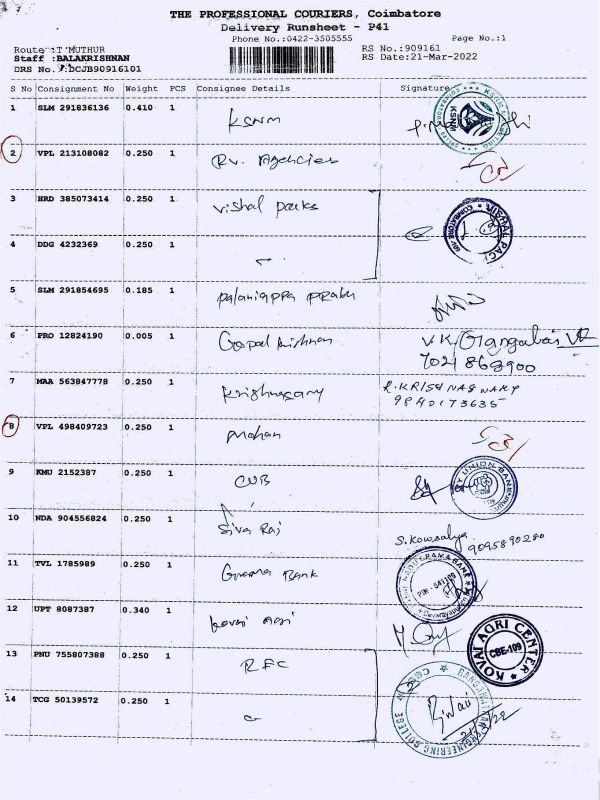 THE PROFESSIONAL COURIERS, Coimbatore
Delivery Runsheet - P41
Phone No.:0422-3505555 Page No.:1
Route :T MUTHUR RS No.:909161
Staff :BALAKRISHNAN RS Date:21-Mar-2022
DRS No. :DCJB90916101
S No Consignment No Weight PCS Consignee Details Signature
1 SLM 291836136 0.410 1 KSNM
2 VPL 213108082 0.250 1 Rv. Agencies
3 HRD 385073414 0.250 1 Vishal Packs
4 DDG 4232369 0.250 1
5 SLM 291854695 0.185 1 Palaniappa Prabu
6 PRO 12824190 0.005 1 Gopal Krishnan V.K. Gangabai
7 MAA 563847778 0.250 1 Krishnasamy R.KRISHNASWAMY
9840173635
8 VPL 498409723 0.250 1 Mohan
9 KMU 2152387 0.250 1 CUB
10 NDA 904556824 0.250 1 Siva Raj S.Kowsalya 9095890280
11 TVL 1785989 0.250 1 Grama Bank
12 UPT 8087387 0.340 1 Kovai Agri
KOVAI AGRI CENTER
CBE-109
13 PNU 755807388 0.250 1 REC
14 TCG 50139572 0.250 1